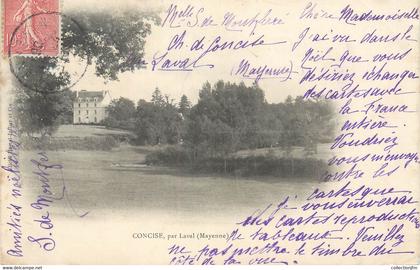 Melle S. de Montferré
Ch. de Concise
par Laval
(Mayenne)
Chère Mademoiselle
J'ai vu dans le
Noël que vous
désiriez échanger
des cartes avec
la France
entière.
Voudriez
vous m'envoyer
contre les
cartes que
je vous enverrai
des cartes reproductions
de tableaux. Veuillez
ne pas mettre le timbre du
côté de la vue.
Amitiés
S. de Mont
CONCISE, par Laval (Mayenne)